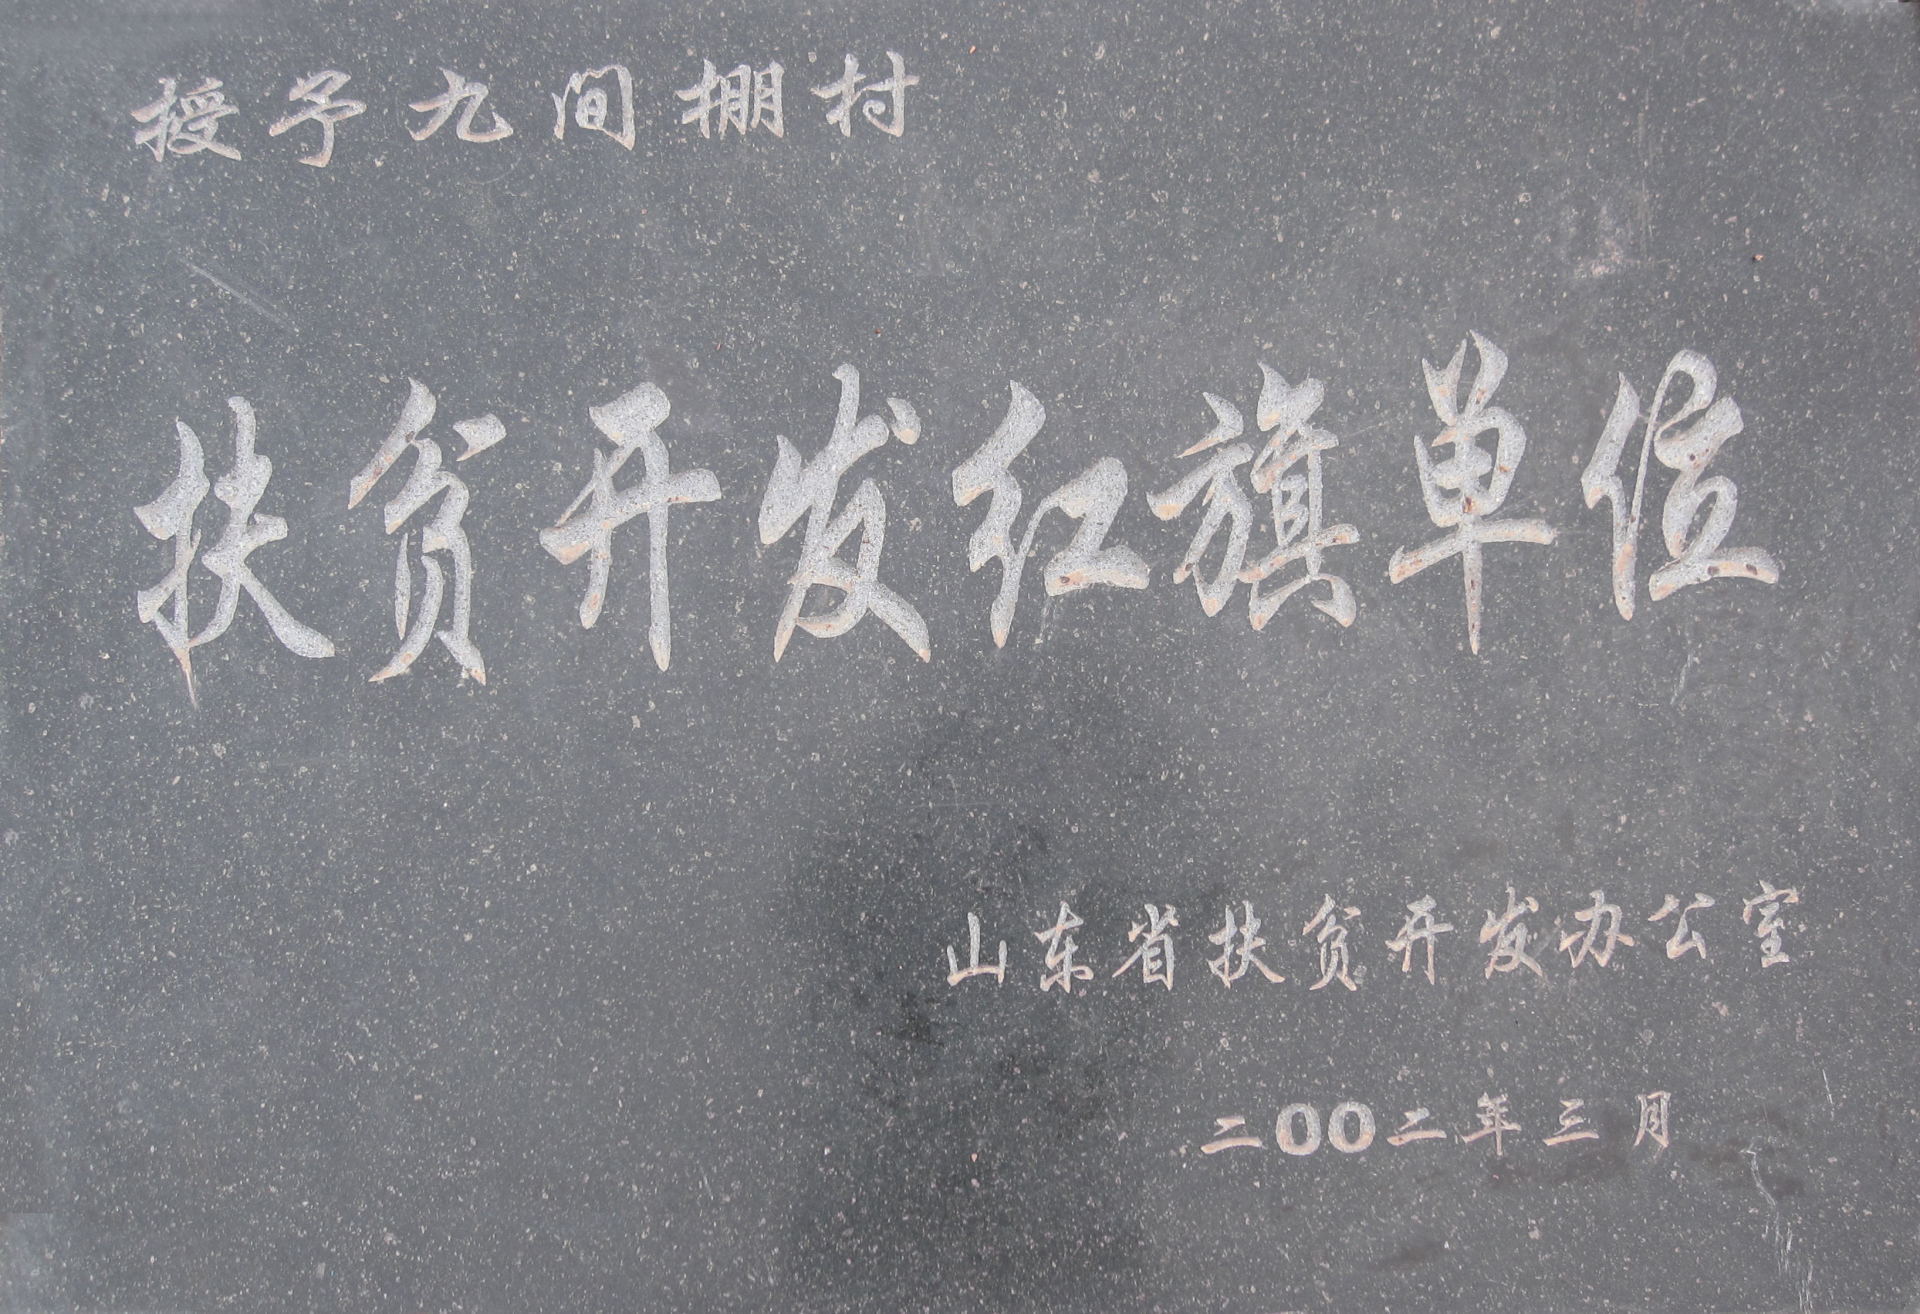 授予九间棚村
扶贫开发红旗单位
山东省扶贫开发办公室
二00二年三月